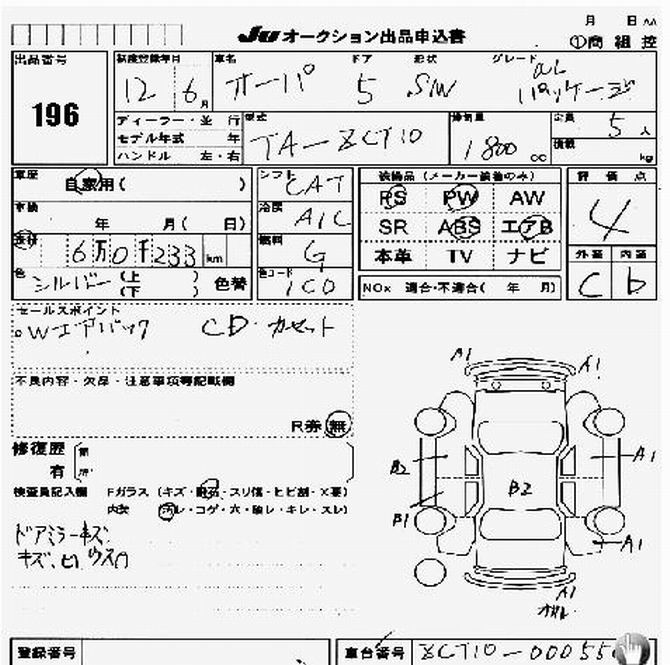 月 日
JU オークション出品申込書 ①商組控
出品番号 196
初度登録年月 12 6月
車名 オーパ
ドア 5
形状 SW
グレード aL パッケージ
ディーラー・並行
モデル年式 年
ハンドル 左・右
型式 TA-ZCT10
排気量 1800 cc
定員 5人
積載 kg
車歴 自家用( )
車検 年 月( 日)
走行 6万0千233 km
色 シルバー (上 (下 ) 色替
シフト CAT
冷房 A/C
燃料 G
色コード 1C0
装備品(メーカー装着のみ)
PS PW AW
SR ABS エアB
本革 TV ナビ
NOx 適合・不適合( 年 月)
評価点 4
外装 内装
C b
セールスポイント
Wエアバッグ CD・カセット
不良内容・欠品・注意事項等記載欄
R券 無
修復歴
有
検査員記入欄 Fガラス(キズ・飛石・スリ傷・ヒビ割・X要)
内装 (汚レ・コゲ・穴・破レ・キレ・スレ)
ドアミラーキズ
A1 A1
B2 A1
B2
B1 A1
A1
登録番号
車台番号 ZCT10-00055